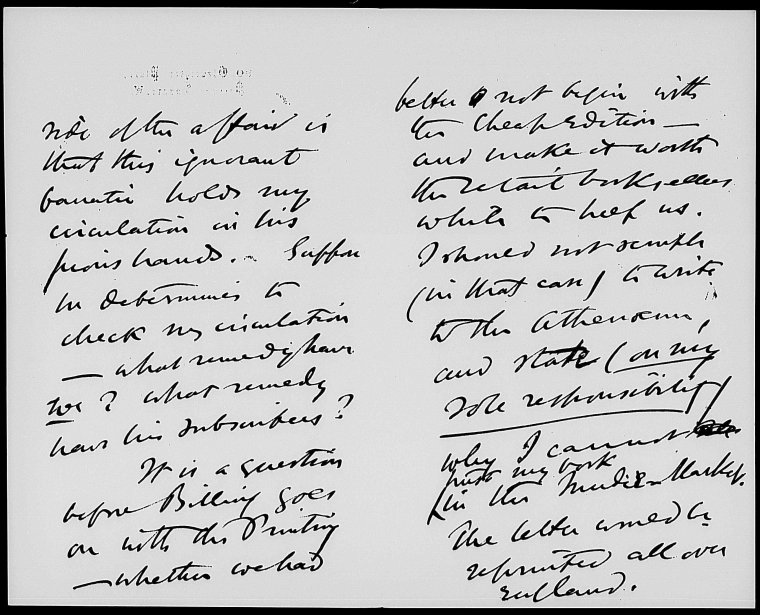 side of the affair is
that this ignorant
fanatic holds my
circulation in his
pious hands. – Suppose
he determines to
check my circulation
— what remedy have
we? what remedy
have his subscribers?
It is a question
before Billing goes
on with the Printing
— whether we had
better not begin with
the Cheap Edition —
and make it worth
the retail booksellers
while to help us.
I should not scruple
(in that case) to write
to the Athenaeum,
and state (on my
sole responsibility)
why I cannot
put my book
(in the Mudie-Market.
The letter would be
reprinted all over
England.